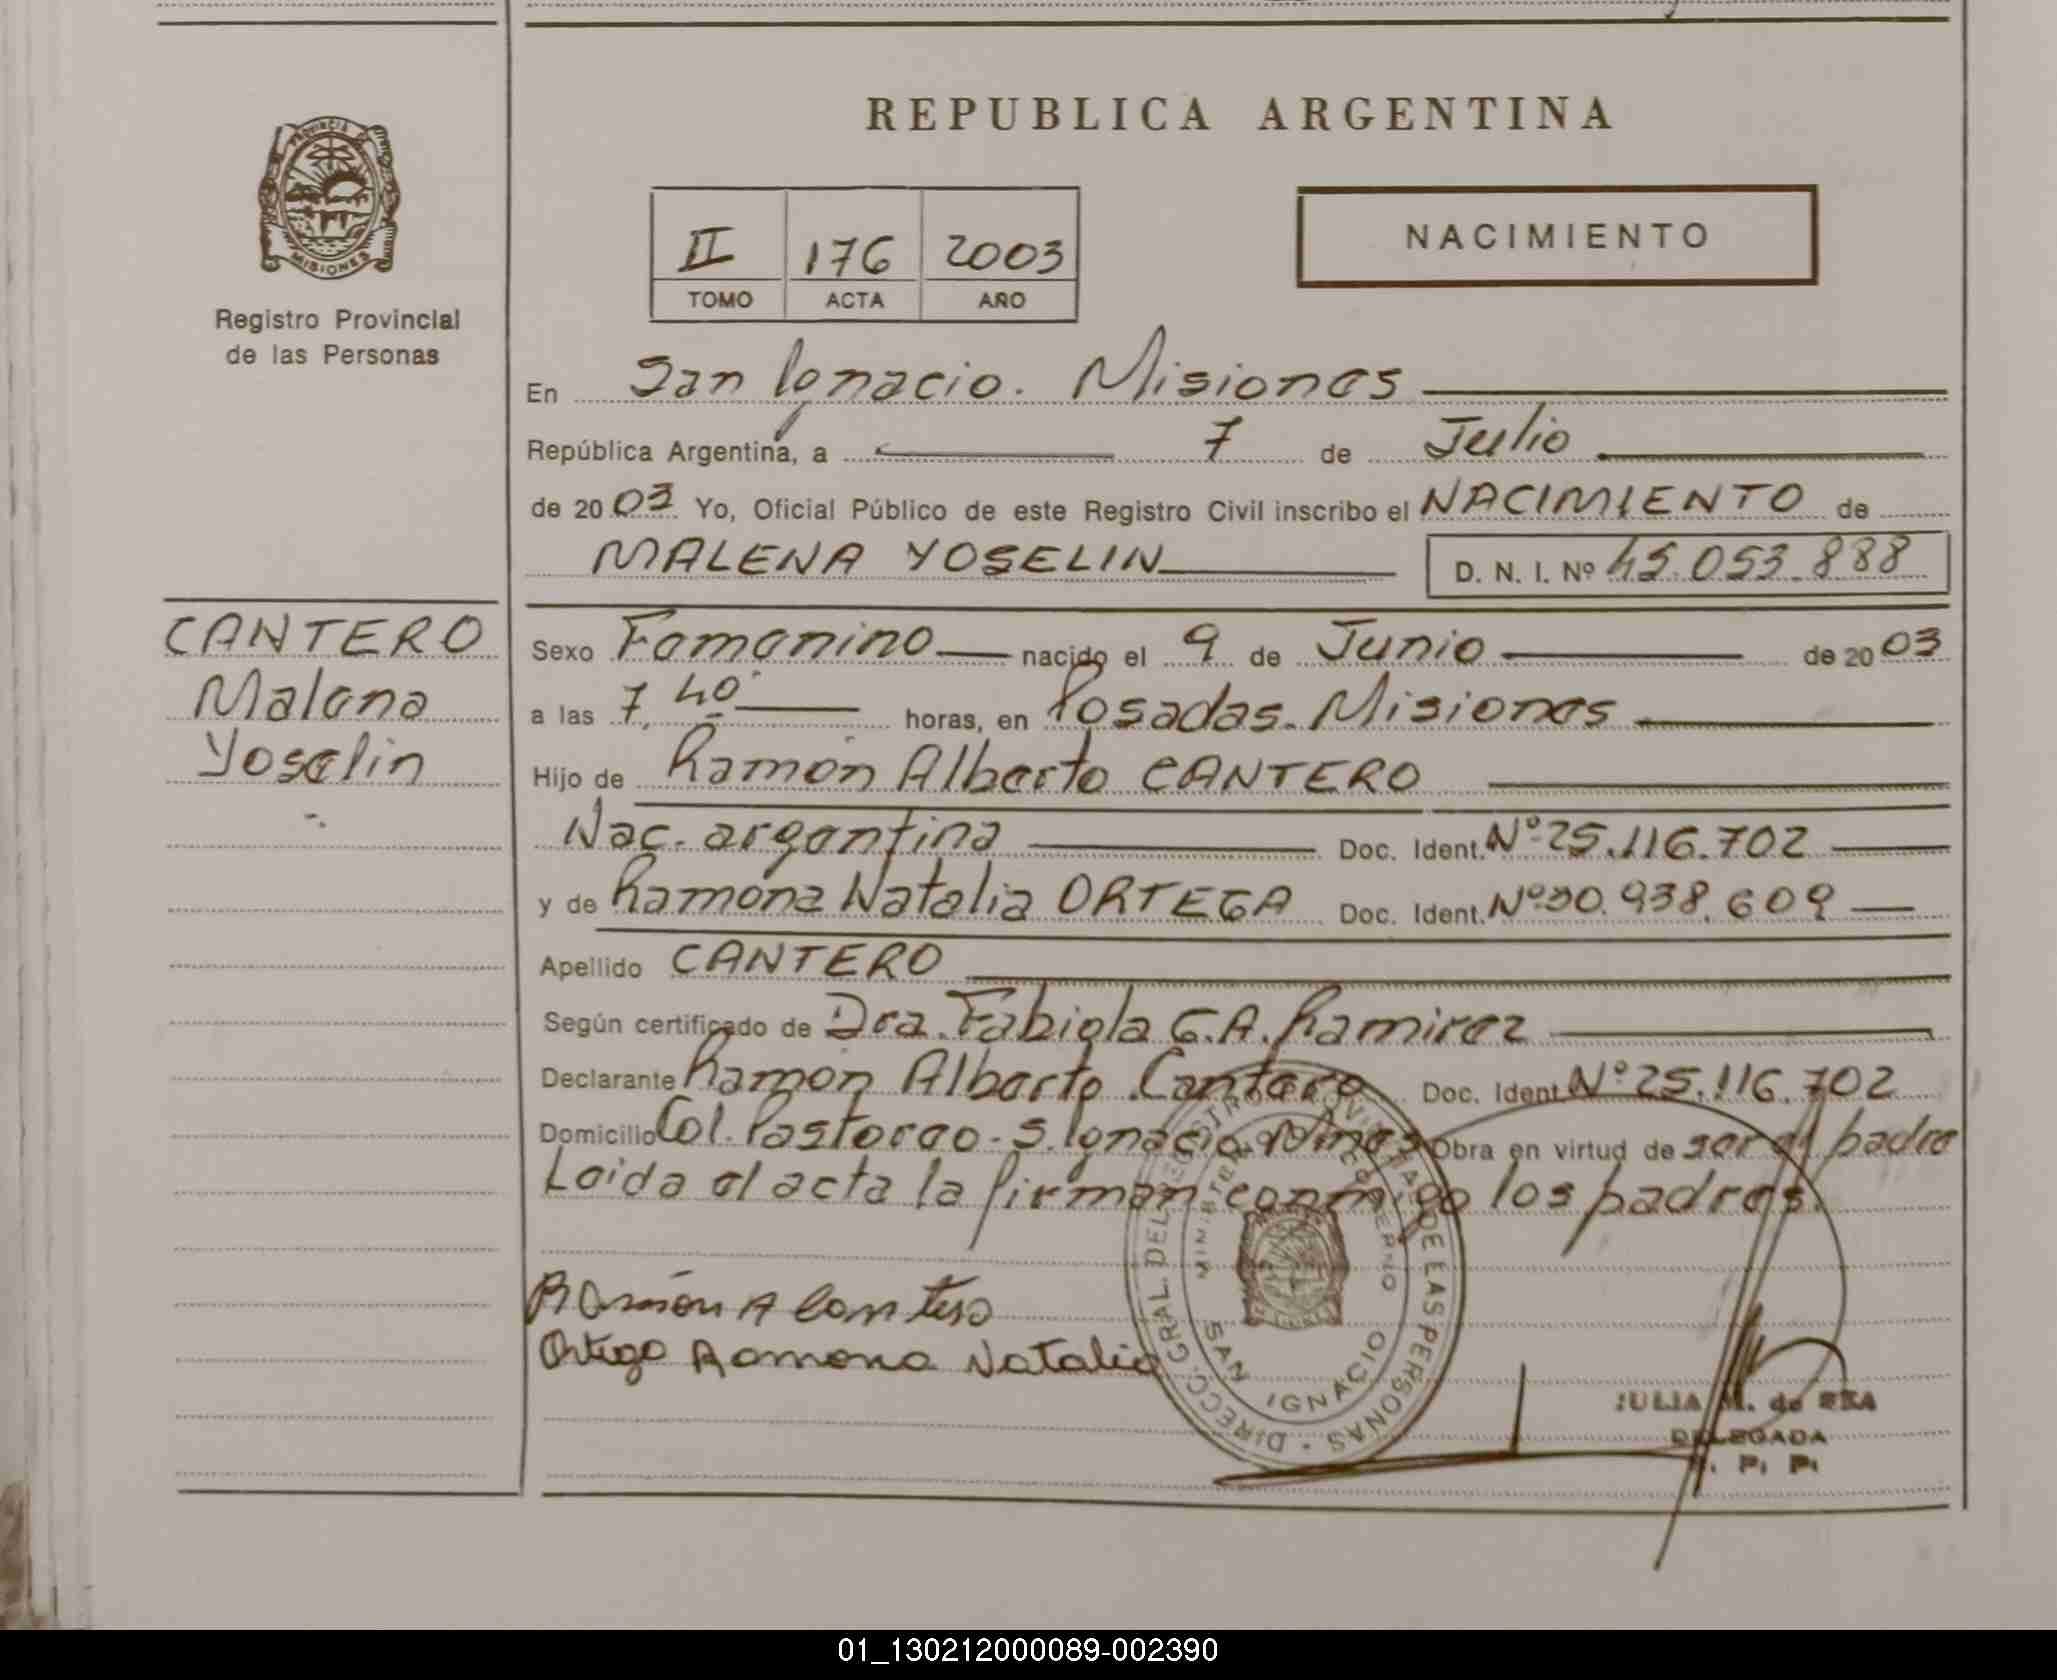 REPUBLICA ARGENTINA
PROVINCIA DE
MISIONES
Registro Provincial
de las Personas
II 176 2003
TOMO ACTA AÑO
NACIMIENTO
En San Ignacio. Misiones
República Argentina, a 7 de Julio
de 2003 Yo, Oficial Público de este Registro Civil inscribo el NACIMIENTO de
MALENA YOSELIN D. N. I. Nº 45.053.888
CANTERO
Malena
Yoselin
Sexo Femenino nacido el 9 de Junio de 2003
a las 7,40 horas, en Posadas. Misiones
Hijo de Ramón Alberto CANTERO
Nac. argentina Doc. Ident. Nº 25.116.702
y de Ramona Natalia ORTEGA Doc. Ident. Nº 30.938.609
Apellido CANTERO
Según certificado de Dra. Fabiola G.A. Ramirez
Declarante Ramon Alberto Cantero Doc. Ident. Nº 25.116.702
Domicilio Col. Pastoreo - S. Ignacio Mnes Obra en virtud de ser el padre
Leida el acta la firman conmigo los padres.
Ramón A Cantero
Ortega Ramona Natalia
DIRECC. GRAL. DEL REGISTRO PROVINCIAL DE LAS PERSONAS
MINISTERIO DE GOBIERNO
SAN IGNACIO
JULIA M. de
DELEGADA
R. P. P.
01_130212000089-002390